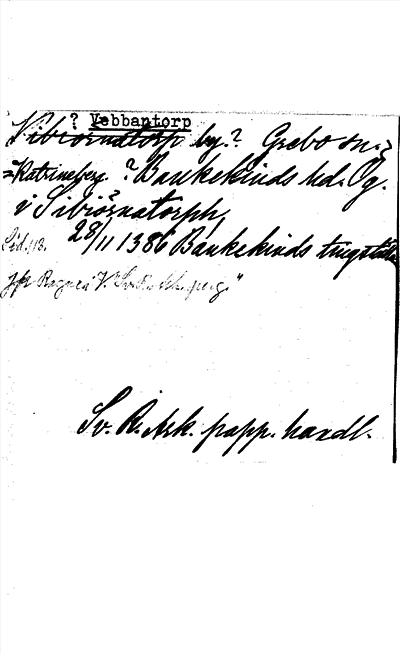 ? Vebbantorp
Vibiornatorp by.? Grebo sn.?
=Katrineberg ? Bankekinds hd. Ög.
i Sibiörnatorph,
28/11 1386 Bankekinds tingställe
jfr Ragnei
Sv. R. Ark. papp. handl.